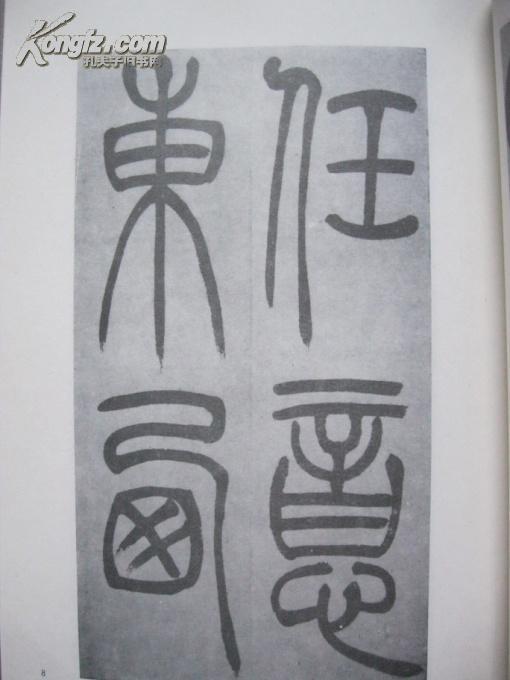 Kongfz.com
孔夫子旧书网
任意
東西
8